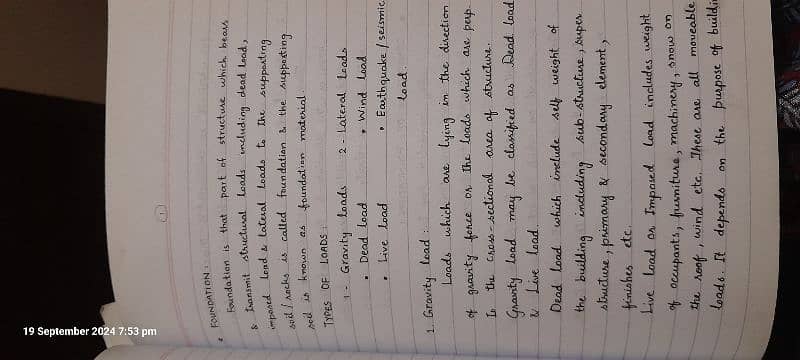 1
• FOUNDATION:
Foundation is that part of structure which bears
& transmit structural loads including dead load,
imposed load & lateral loads to the supporting
soil / rocks is called foundation & the supporting
soil is known as foundation material
TYPES OF LOADS:
1- Gravity loads 2- Lateral loads
• Dead load • Wind load
• Live load • Earthquake / seismic
load.
1. Gravity load:
Loads which are lying in the direction
of gravity force or the loads which are perp.
to the cross-sectional area of structure.
Gravity load may be classified as Dead load
& Live load
Dead load which include self weight of
the building including sub-structure, super
structure, primary & secondary element,
finishes etc.
Live load or Imposed load includes weight
of occupants, furniture, machinery, snow on
the roof, wind etc. These are all moveable
loads. It depends on the purpose of buildin
19 September 2024 7:53 pm